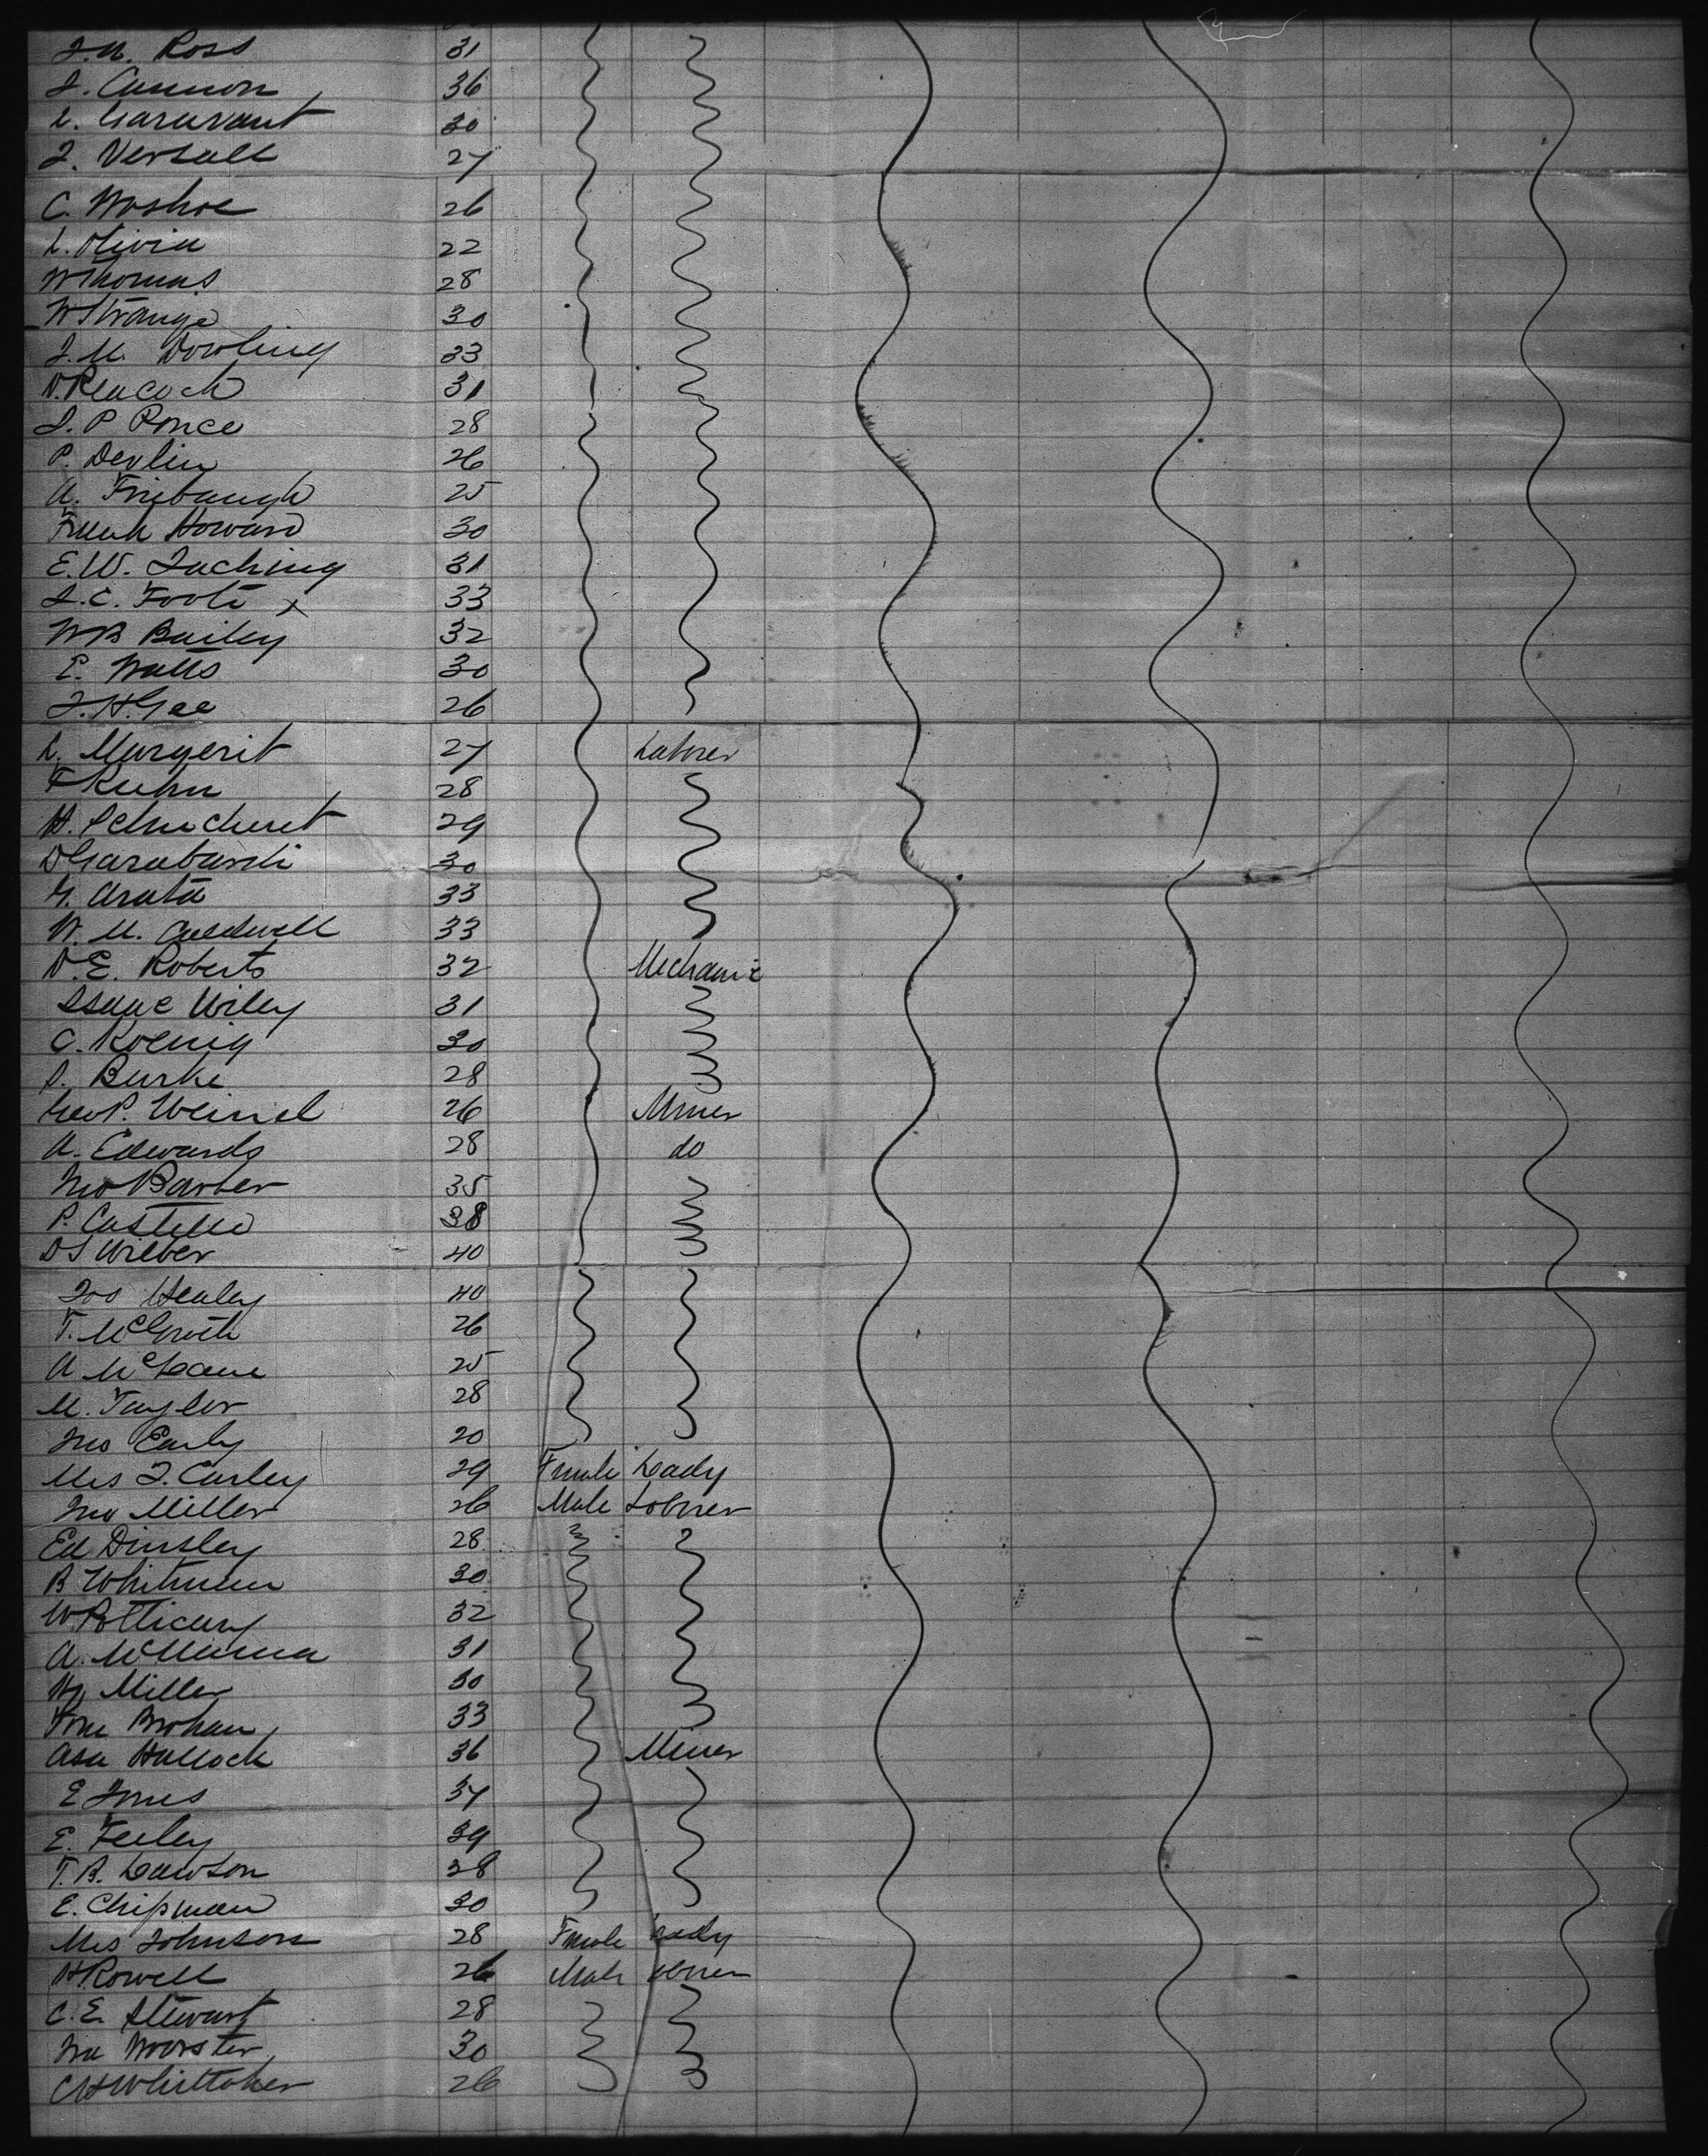 J. M. Ross 31
J. Cannon 36
L. Garavant 30
J. Versall 27
C. Woshoe 26
L. Olivia 22
W Thomas 28
W Strange 30
J. M. Dowling 33
D. Peacock 31
J. P Ponce 28
P. Devlin 26
A. Friebaugh 25
Frank Howard 30
E. W. Taching 31
J. C. Foote x 33
W B Bailey 32
E. Watts 30
J. H. Gee 26
L. Margerit 27 Laborer
F Kuhn 28
H. 29
D Garabardi 30
G. Arata 33
W. M. Caldwell 33
D. E. Roberts 32 Mechanic
Isaac Wiley 31
C. Koenig 30
S. Burke 28
Geo P. Weinel 26 Miner
A. Edwards 28 do
Jno Barber 35
P. Costello 38
D S Wilber 40
Jos Healey 40
T. McGrath 26
A McLane 25
M. Taylor 28
Jno Early 20
Mrs J. Curley 29 Female Lady
Jno Miller 26 Male Laborer
Ed Dinsley 28
B Whitman 30
W. Potticary 32
A. 31
Hy Miller 30
Tom Brohan 33
Asa Hallock 36 Miner
E Jones 37
E. Feeley 39
T. B. Lawson 38
E. Chipman 30
Mrs Johnson 28 Female Lady
H Rowell 26 Male Laborer
C. E. Stewart 28
Jno Worster 30
C H Whittaker 26